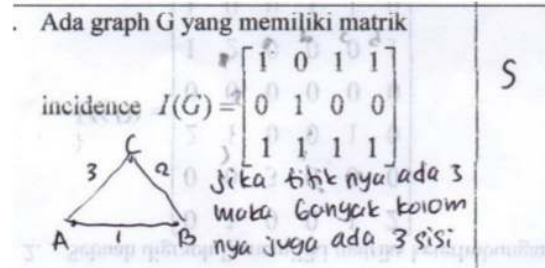 . Ada graph G yang memiliki matrik
incidence I(G) =
1 0 1 1
0 1 0 0
1 1 1 1
S
C
3 2
A 1 B
jika titik nya ada 3
maka banyak kolom
nya juga ada 3 sisi